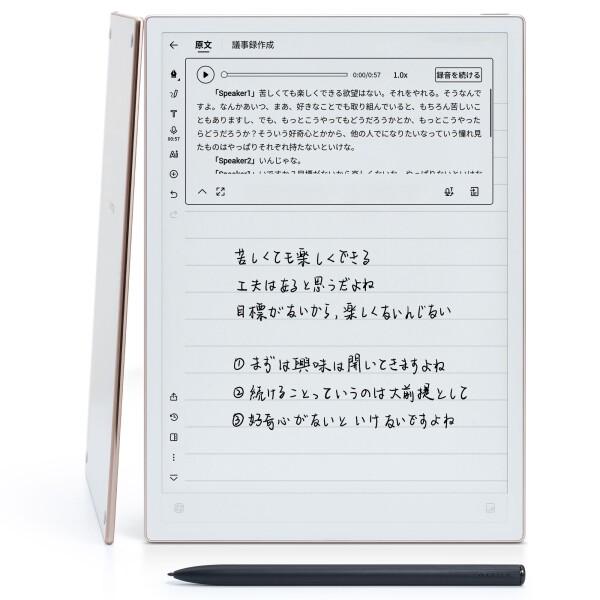 原文 議事録作成
0:00/0:57 1.0x 録音を続ける
「Speaker1」苦しくても楽しくできる欲望はない。それをやれる。そうなんで
すよ。なんかあいつ、まあ、好きなことでも取り組んでいると、もちろん苦しいこ
ともありますし、でも、もっとこうやってもどうだろうかとか、もっとこうやった
らどうだろうか？そういう好奇心とかから、他の人でになりたいなっていう憧れ見
たものはやっぱりそれぞれ持たないといけな。
「Speaker2」いんじゃな。
「Speaker1」いですか？目標がないから楽しくないな、やっぱりないといけな
T
00:57
苦しくても楽しくできる
工夫はあると思うだよね
目標がないから，楽しくないんじない
① まずは興味は聞いてきますよね
② 続けることっていうのは大前提として
③ 好奇心がないといけないですよね